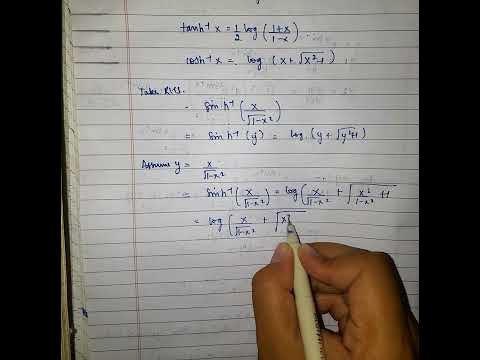 tanh⁻¹ x = 1/2 log (1+x/1-x)
cosh⁻¹ x = log (x + √x²-1)
Take R.H.S.
= sinh⁻¹ (x/√1-x²)
= sinh⁻¹ (y) = log (y + √y²+1)
Assume y = x/√1-x²
= sinh⁻¹ (x/√1-x²) = log (x/√1-x² + √x²/1-x² + 1)
= log (x/√1-x² + √x²